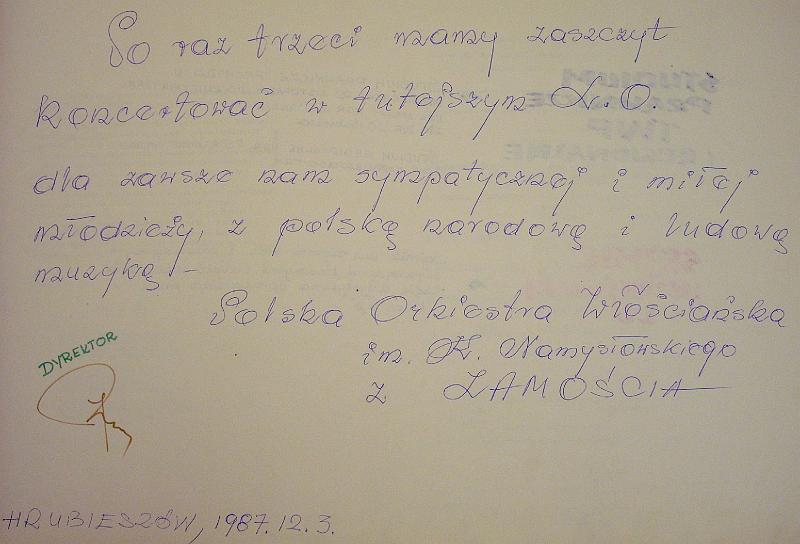 Po raz trzeci mamy zaszczyt
koncertować w tutejszym L.O.
dla zawsze nam sympatycznej i miłej
młodzieży, z polską narodową i ludową
muzyką –
Polska Orkiestra Włościańska
im. K. Namysłowskiego
z ZAMOŚCIA
DYREKTOR
HRUBIESZÓW, 1987.12.3.